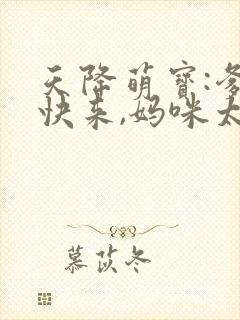 天降萌宝:爹
快来,妈咪太
慕苡冬